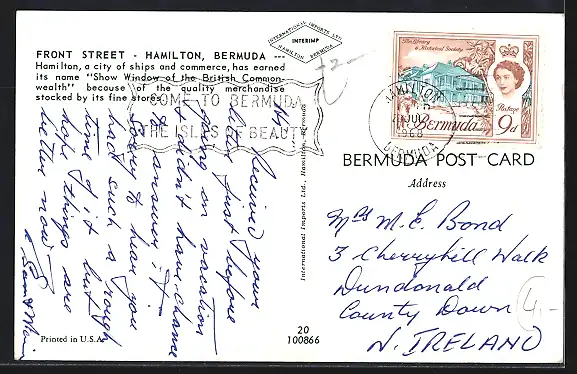 FRONT STREET - HAMILTON, BERMUDA ---
Hamilton, a city of ships and commerce, has earned
its name "Show Window of the British Common-
wealth" because of the quality merchandise
stocked by its fine stores.
INTERNATIONAL IMPORTS LTD.
INTERIMP
HAMILTON BERMUDA
COME TO BERMUDA
THE ISLES OF BEAUTY
Hi
Received your
letter just before
going on vacation
& didn't have chance
to answer it -
Sorry to hear you
had such a rough
time of it but
hope things are
better now -
Printed in U.S.A.
International Imports Ltd., Hamilton, Bermuda
20
100866
The Library
& Historical Society
Postage
Bermuda 9d
HAMILTON
JUL
1968
BERMUDA
BERMUDA POST CARD
Address
Mrs M. E. Bond
3 Cherryhill Walk
Dundonald
County Down
N. IRELAND
4.-